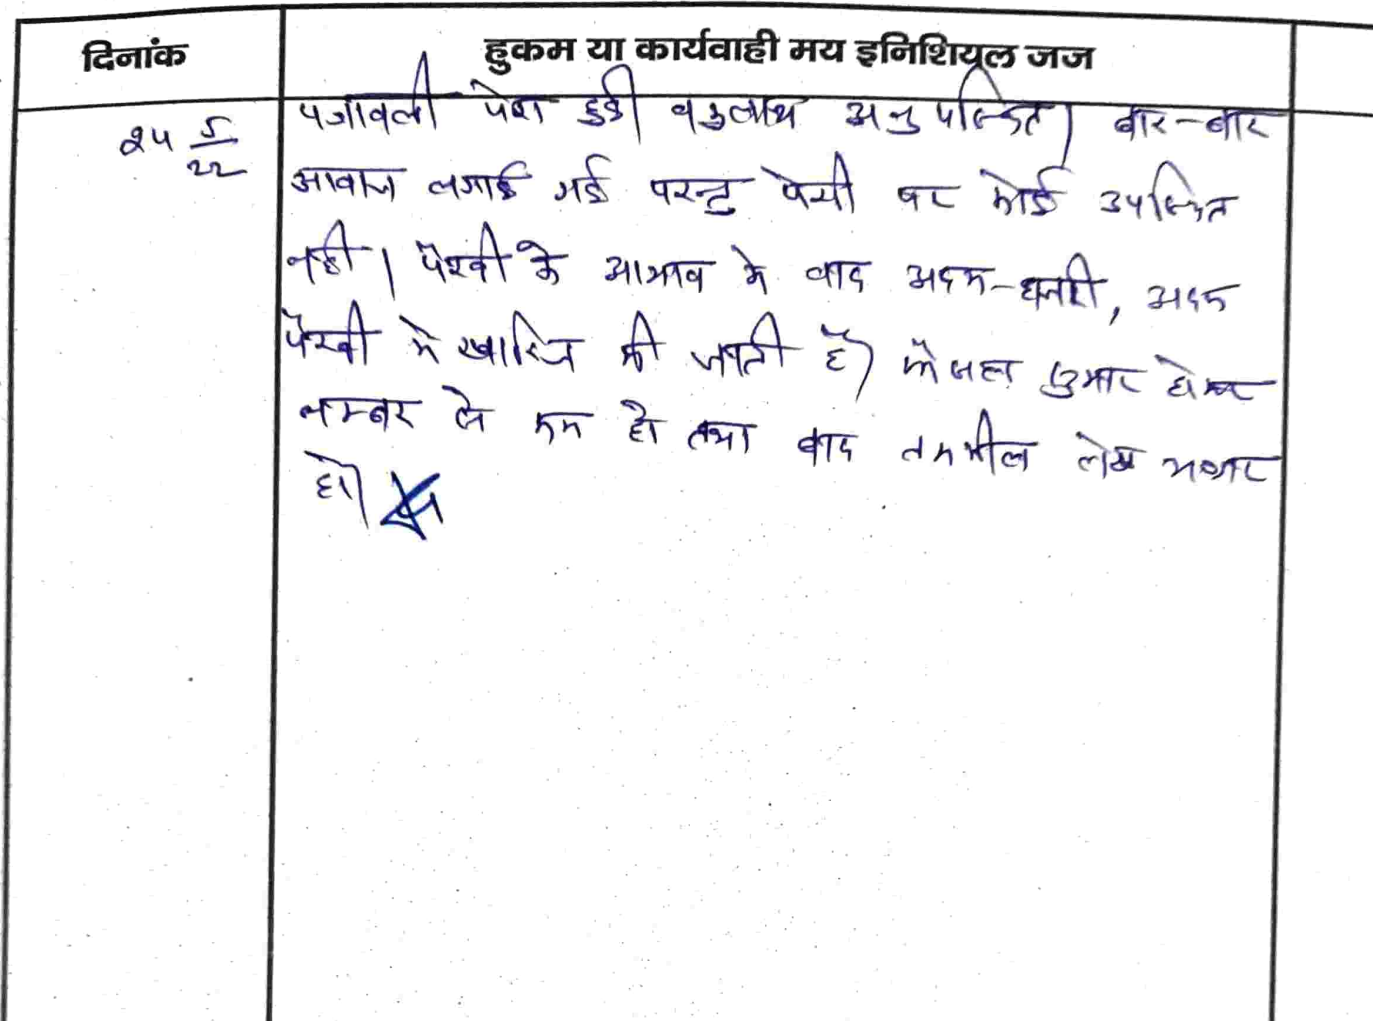 दिनांक
हुकम या कार्यवाही मय इनिशियल जज
२५ 5/22
पत्रावली पेश हुई। वकुलाय अनुपस्थित। बार-बार
आवाज लगाई गई परन्तु पेशी पर कोई उपस्थित
नही। पैरवी के आभाव मे वाद अदम-हाजरी, अदम
पैरवी मे खारिज की जाती है। फैसला शुमार होकर
नम्बर से कम हो तथा बाद तकमील लेख भण्डार
हो।